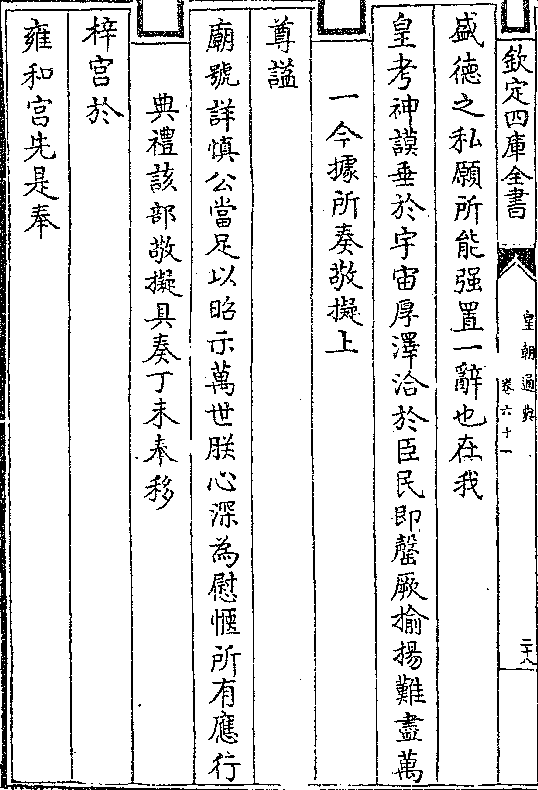 欽定四庫全書
皇朝通典
卷六十一
二十八
盛德之私願所能强置一辭也在我
皇考神謨垂於宇宙厚澤洽於臣民即罄厥揄揚難盡萬
一今據所奏敬擬上
尊諡
廟號詳慎公當足以昭示萬世朕心深為慰愜所有應行
典禮該部敬擬具奏丁未奉移
梓宫於
雍和宫先是奉